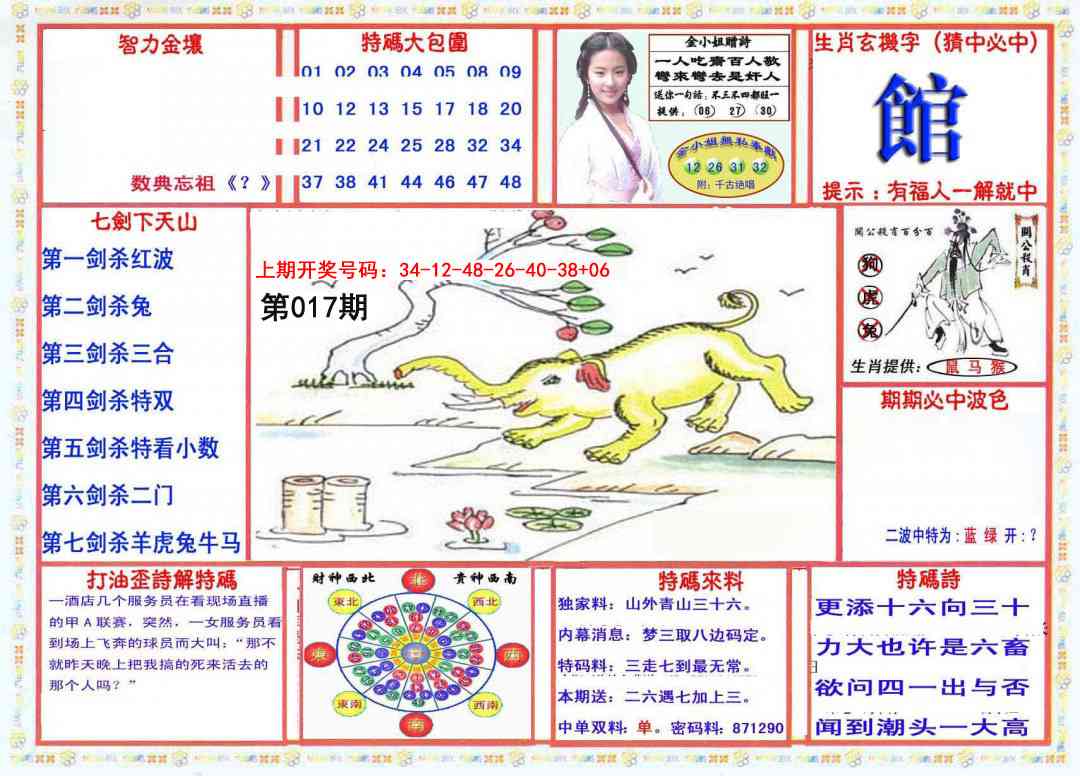 智力金壤
数典忘祖《？》
特碼大包圍
01 02 03 04 05 08 09
10 12 13 15 17 18 20
21 22 24 25 28 32 34
37 38 41 44 46 47 48
金小姐赠詩
一人吃齋百人敬
彎來彎去是奸人
送你一句话，不三不四都旺一
提供：(06) 27) (30)
金小姐無私奉獻
12 26 31 32
附：千古绝唱
生肖玄機字（猜中必中）
館
提示：有福人一解就中
七劍下天山
第一剑杀红波
第二剑杀兔
第三剑杀三合
第四剑杀特双
第五剑杀特看小数
第六剑杀二门
第七剑杀羊虎兔牛马
上期开奖号码：34-12-48-26-40-38+06
第017期
關公殺肖百分百
關公殺肖
狗
虎
兔
生肖提供：鼠 马 猴
期期必中波色
二波中特为：蓝 绿 开：？
打油歪詩解特碼
一酒店几个服务员在看现场直播
的甲A联赛，突然，一女服务员看
到场上飞奔的球员而大叫：“那不
就昨天晚上把我搞的死来活去的
那个人吗？”
财神西北
贵神西南
北
東北
西北
東
西
東南
西南
南
特碼來料
独家料：山外青山三十六。
内幕消息：梦三取八边码定。
特码料：三走七到最无常。
本期送：二六遇七加上三。
中单双料：单。密码料：871290
特碼詩
更添十六向三十
力大也许是六畜
欲问四一出与否
闻到潮头一大高